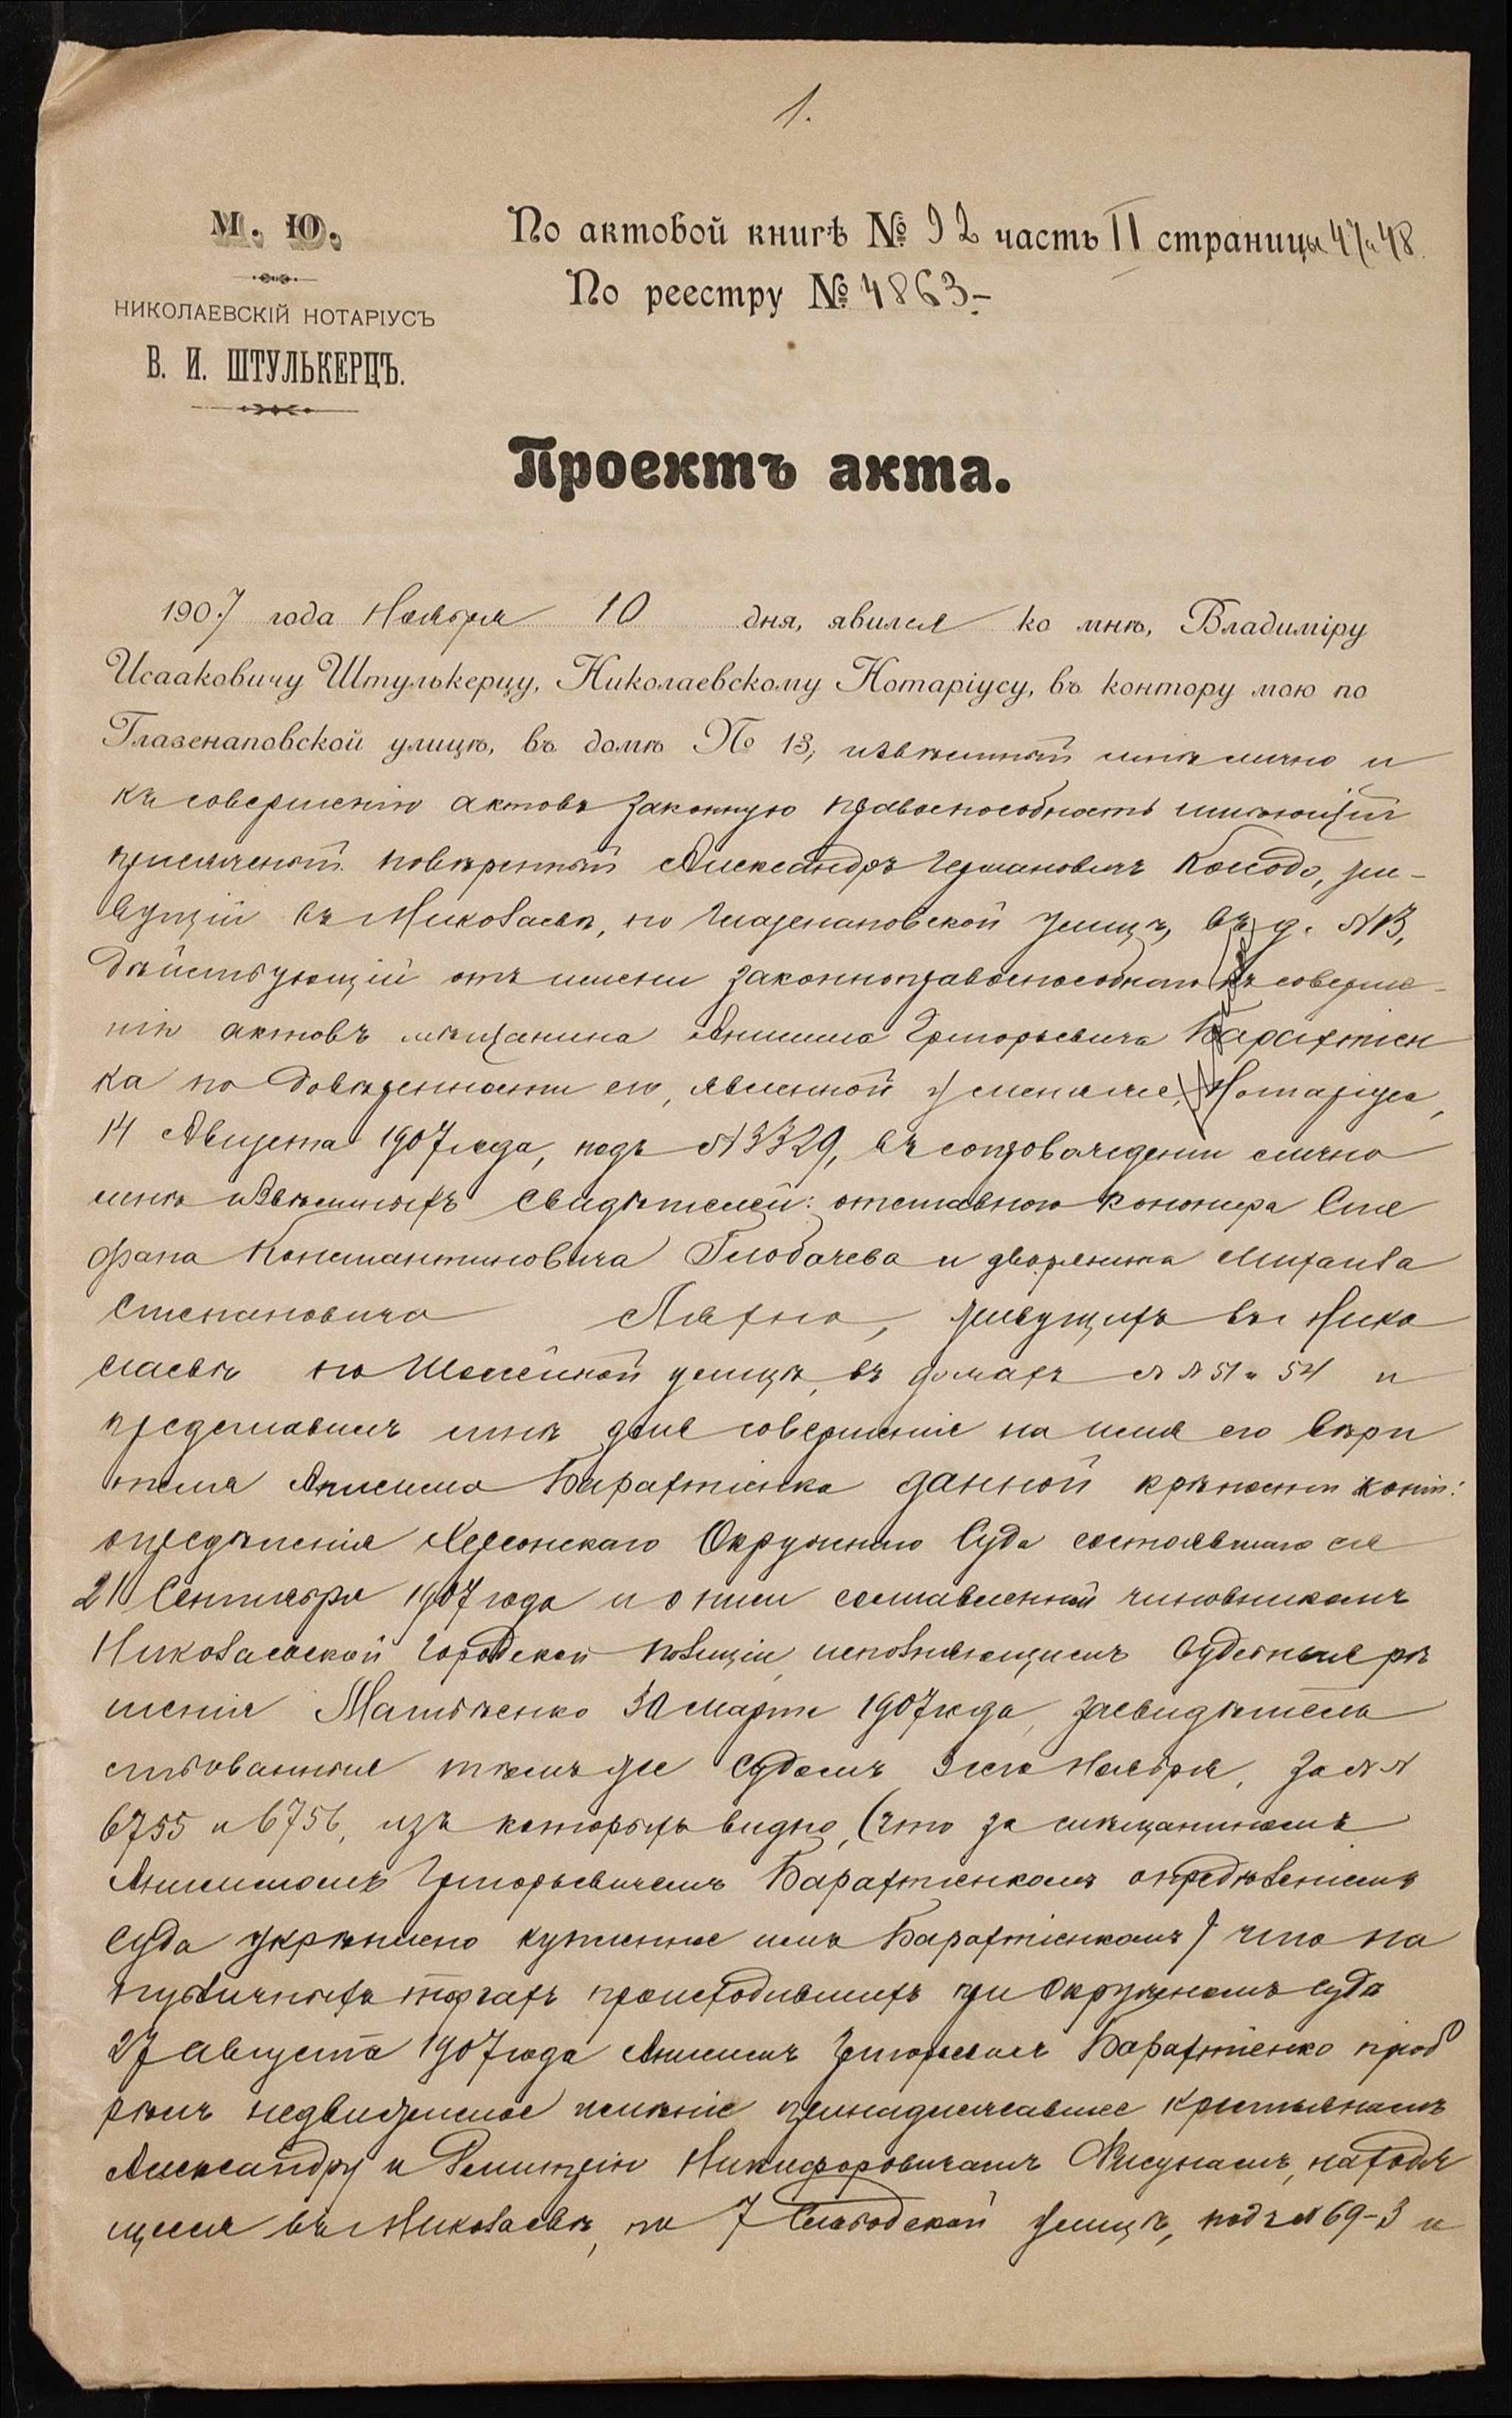 1.
М. Ю.
НИКОЛАЕВСКІЙ НОТАРІУСЪ
В. И. ШТУЛЬКЕРЦЪ.
По актовой книгѣ № 92 часть II страницы 47 и 48.
По реестру № 4863-
Проектъ акта.
1907 года Ноября 10 дня, явился ко мнѣ, Владиміру
Исааковичу Штулькерцу, Николаевскому Нотаріусу, въ контору мою по
Глазенаповской улицѣ, въ домѣ № 13, извѣстный мнѣ лично и
къ совершенію актовъ законную правоспособность имѣющій
присяжный повѣренный Александръ Германовичъ жи-
вущій въ Николаевѣ, по Глазенаповской улицѣ, въ д. №
дѣйствующій отъ имени законноправоспособнаго къ соверше-
нію актовъ мѣщанина Анисима Григорьевича Барахтіен
ка по довѣренности его, явленной у меня же, Нотаріуса,
14 Августа 1907 года, подъ № 3329, въ сопровожденіи лично
мнѣ извѣстныхъ свидѣтелей: отставного канонира Сте
фана Константиновича Глобачева и дворянина Михаила
Степановича живущихъ въ Нико
лаевѣ по Шоссейной улицѣ, въ домахъ №№ 51 и 54 и
представилъ мнѣ для совершенія на имя его вѣри
теля Анисима Барахтіенка данной крѣпости копіи:
опредѣленія Херсонскаго Окружного Суда состоявшагося
21 Сентября 1907 года и описи составленной чиновникомъ
Николаевской Городской полиціи, исполняющимъ судебныя рѣ
шенія Матвѣенко 30 марта 1907 года, засвидѣтель
ствованныя тѣмъ же Судомъ 3 сего Ноября, за №№
6755 и 6756, изъ которыхъ видно, (что за мѣщаниномъ
Анисимомъ Григорьевичемъ Барахтіенкомъ опредѣленіемъ
суда укрѣплено купленное имъ Барахтіенкомъ) что на
публичныхъ торгахъ происходившихъ при Окружномъ суда
27 Августа 1907 года Анисимъ Григорьевичъ Барахтіенко пріоб
рѣлъ недвижимое имѣніе принадлежавшее крестьянамъ
Александру и Димитрію Никифоровичамъ находя
щееся въ Николаевѣ, по 7 Слободской улицѣ, подъ № 69-3 и